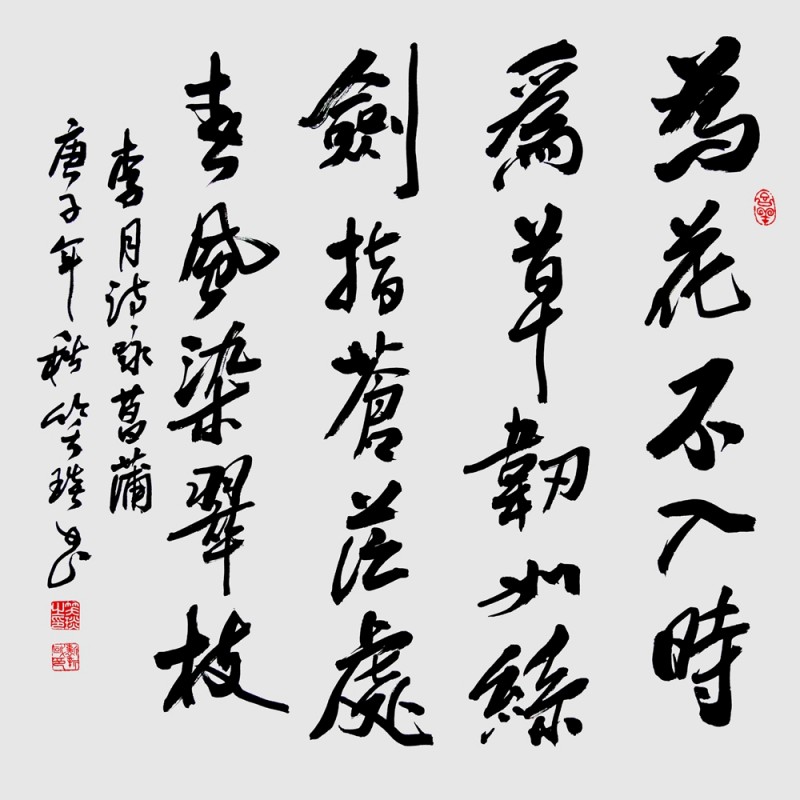 為花不入時
爲草韌如絲
劍指蒼茫處
春風染翠枝
李月詩詠菖蒲
庚子年秋笑琰書